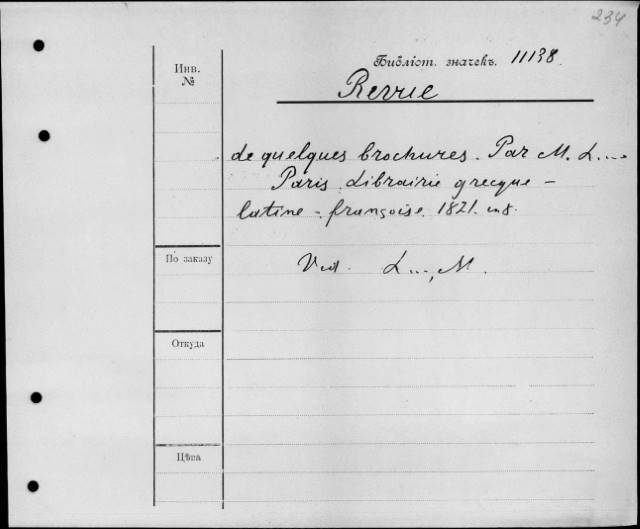 234
Инв.
№
Бібліот. значекъ. 11138.
Revue
de quelques brochures. Par M. L....
Paris. Librairie grecque-
latine-françoise. 1821. in 8.
По заказу
Vid. L..., M.
Откуда
Цѣна